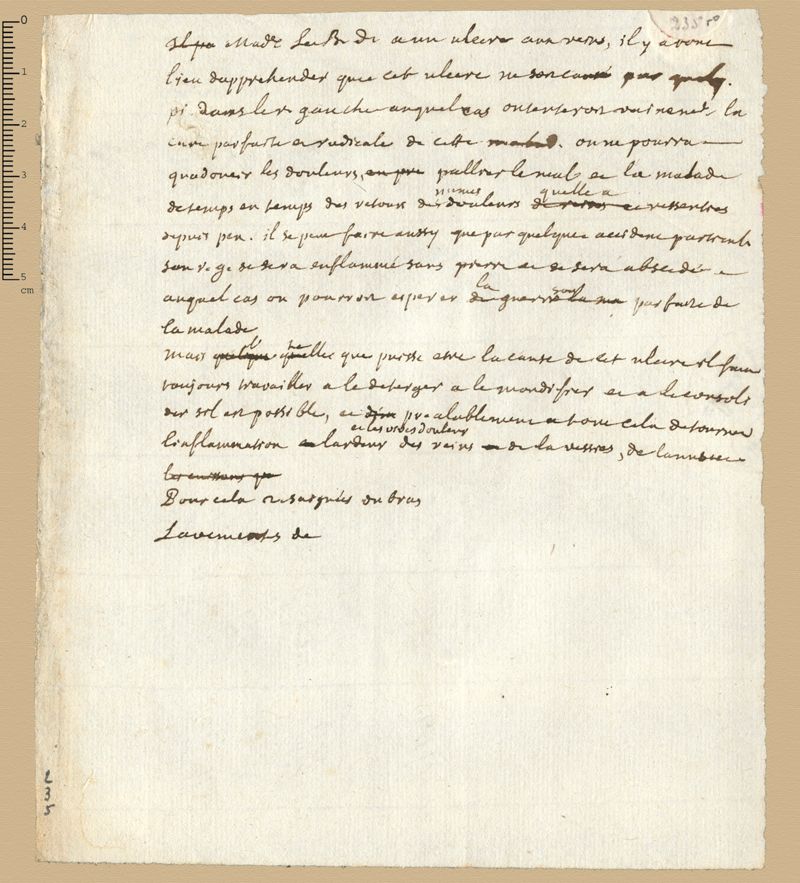 235 ro
Il pa Made La B. de a un ulcere aux reins, il y a
lieu dapprehender que cet ulcere ne soit causé par quelq.
dans le r. gauche auquel cas on tenteroit vainemt. la
cure parfaite et radicale de cette malad. on ne pourra
qu'adoucir les douleurs, en pre pallier le mal et la malade
mêmes quelle a
de temps en temps des retours des douleurs de reins et ressenties
depuis peu. il se peut faire aussy que par quelque accident particul.
son r. g. se sera enflammé sans pierre et se sera abscedé
la
auquel cas on pourroit esperer de guerir parfaite de
la malade
mais quelque quelle que puisse estre la cause de cet ulcere il faut
toujours travailler a le deterger a le mondifier et a le consoli
der sil est possible, et prealablement a tout cela detourner
et les vives douleurs
l'inflammation et lardeur des reins et de la vessie, de
les cuissons qu
Pour cela 2 saignées du bras
Lavements de
235